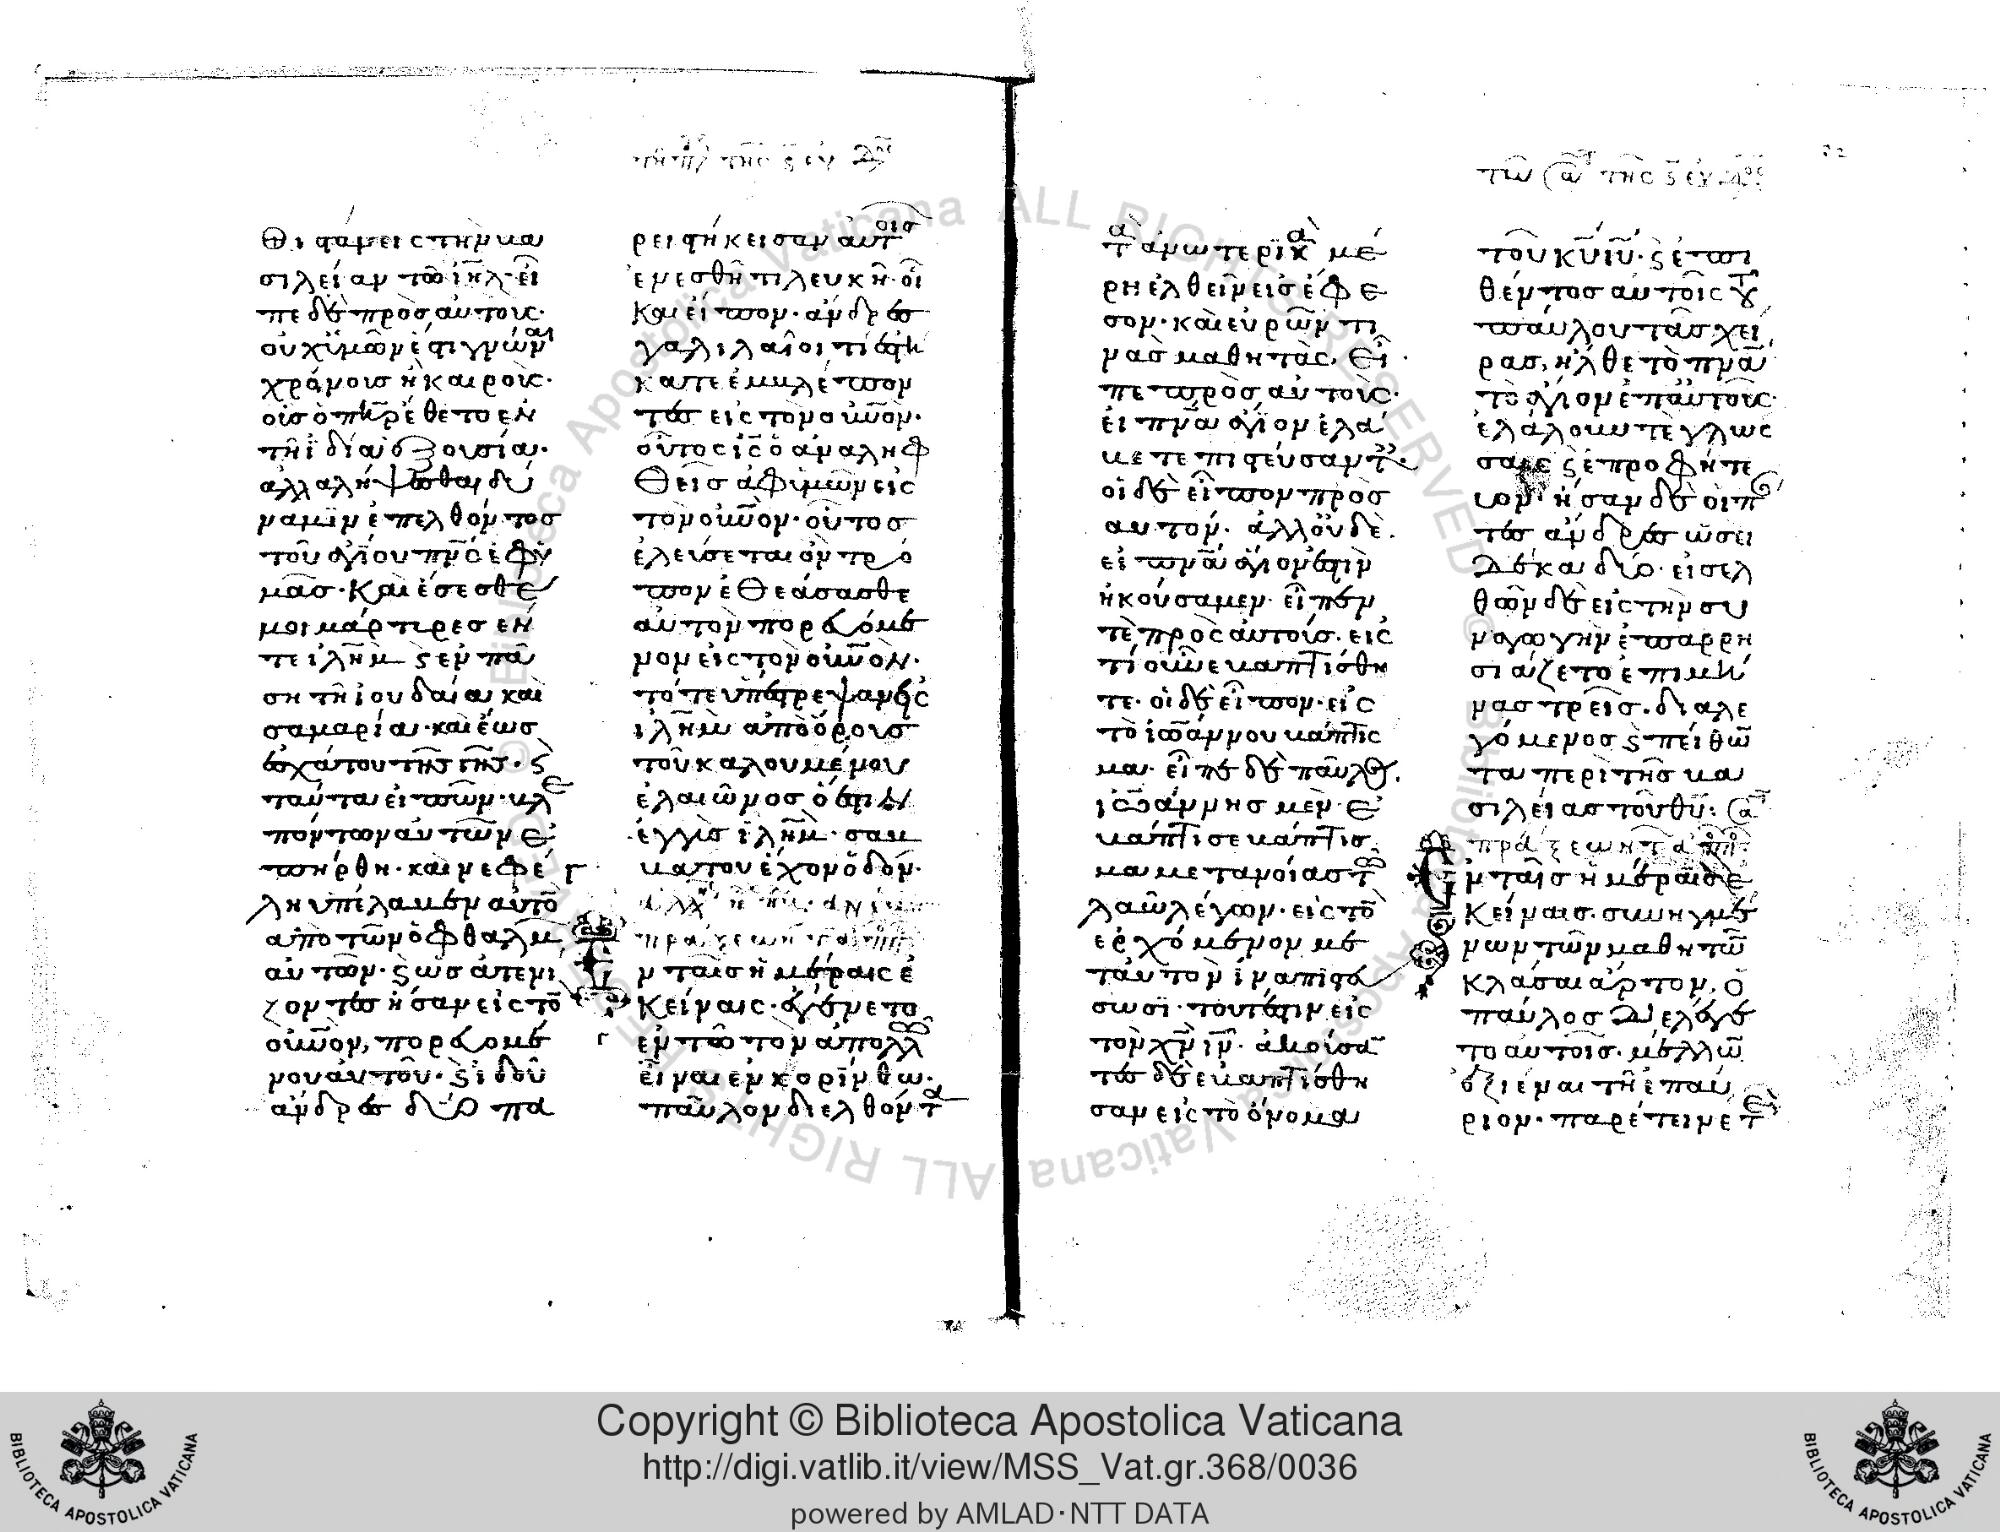 θιστάνεις τὴν βα
σιλείαν τῶ ἰη̅λ· εἶ
πε δὲ πρὸς αὐτούς·
οὐχ ὑμῶν ἐστι γνῶναι
χρόνους ἢ καιροὺς·
οὓς ὁ πη̅ρ ἔθετο ἐν
τῆ ἰδία ἐξουσία·
ἀλλὰ λήψεσθαι δύ
ναμιν ἐπελθόντος
τοῦ ἁγίου πν̅ς ἐφ' ὑ
μᾶς· Καὶ ἔσεσθε
μοι μάρτιρες ἐν
τε ἰλη̅μ ϛ ἐν πά
ση τῆ ἰουδαία καὶ
σαμαρία· καὶ ἕως
ἐσχάτου τῆς γῆς· ϛ
ταῦτα εἰπὼν· βλε
πόντων αὐτῶν ἐ
πήρθη· καὶ νεφέ
λη ὑπέλαβεν αὐτὸ
ἀπὸ τῶν ὀφθαλμ
αὐτῶν· ϛ ὡς ἀτενί
ζοντες ἦσαν εἰς τὸ
οὐν̅ον, πορευομέ
νου αὐτοῦ· ϛ ἰδοὺ
ἄνδρες δύο πα
ρειστήκεισαν αὐτοῖς
ἐν ἐσθῆτι λευκῆ· οἳ
Καὶ εἶπον· ἄνδρες
γαλιλαῖοι τί ἑστή
κατε ἐμβλέπον
τες εἰς τὸν οὐν̅ον·
οὗτος ὁ ις̅ ὁ ἀναληφ
θεὶς ἀφ' ἡμῶν εἰς
τὸν οὐν̅ον· οὕτος
ἐλεύσεται ὃν τρό
πον ἐθεάσασθε
αὐτὸν πορευόμε
νον εἰς τὸν οὐν̅ον·
τότε ὑπέστρεψαν εἰς
ἰλη̅μ ἀπὸ ὄρους
τοῦ καλουμένου
ἐλαιῶνος ὅ ἐστιν
ἐγγὺς ἰλη̅μ· σαβ
βάτου ἔχον ὁδόν·
πράξεων τ ἀπ
ν ταῖς ἡμέραις ἐ
Κείναις· ἐγένετο
ἐν τῶ τὸν ἀπολλὼ
εἶναι ἐν κορίνθω·
παῦλον διελθόντα
τὰ ἀνωτερικὰ μέ
ρη ἐλθεῖν εἰς ἔφε
σον· καὶ εὑρών τι
νας μαθητὰς, εἶ
πε πρὸς αὐτοὺς·
εἰ πν̅α ἅγιον ἐλά
βετε πιστεύσαντ·
οἱ δὲ εἶπον πρὸς
αὐτόν· ἀλλ' οὐδὲ
εἰ πν̅α ἅγιον ἐστὶν
ἠκούσαμεν· εἶπέν
τε πρὸς αὐτοὺς· εἰς
τί οὖν ἐβαπτίσθη
τε· οἱ δὲ εἶπον· εἰς
τὸ ἰωάννου βάπτισ
μα· εἶπε δὲ παῦλος.
ἰωάννης μὲν ἐ
βάπτισε βάπτισ
μα μετανοίας τῶ
λαῶ λέγων· εἰς τὸ
ἐρχόμενον με
τ' αὐτὸν ἵνα πιστεύ
σωσι· τουτέστιν εἰς
τὸν χν̅ ιν̅· ἀκούσα
τες δὲ ἐβαπτίσθη
σαν εἰς τὸ ὄνομα
τοῦ κυ̅ ιυ̅· ϛ ἐπι
θέντος αὐτοῖς τοῦ
παύλου τὰς χεῖ
ρας, ἦλθε τὸ πν̅α
τὸ ἅγιον ἐπ' αὐτοὺς·
ἐλάλουν τε γλώσ
σαις ϛ ἐπροφήτε
υον· ἦσαν δὲ οἱ π
τες ἄνδρες ὡσεὶ
δέκα δύο· εἰσελ
θὼν δὲ εἰς τὴν συ
ναγωγὴν ἐπαρρη
σιάζετο ἐπὶ μῆ
νας τρεῖς· διαλε
γόμενος ϛ πείθων
τὰ περὶ τῆς βα
σιλείας τοῦ θυ̅·
πράξεων τ ἀπ
Ἐν ταῖς ἡμέραις ἐ
Κείναις· συνηγμέ
νων τῶν μαθητῶ
κλάσαι ἄρτον, ὁ
παῦλος διελέγε
το αὐτοῖς· μέλλων
ἐξιέναι τῆ ἐπαύ
ριον· παρέτεινε τε
Copyright © Biblioteca Apostolica Vaticana
http://digi.vatlib.it/view/MSS_Vat.gr.368/0036
powered by AMLAD·NTT DATA